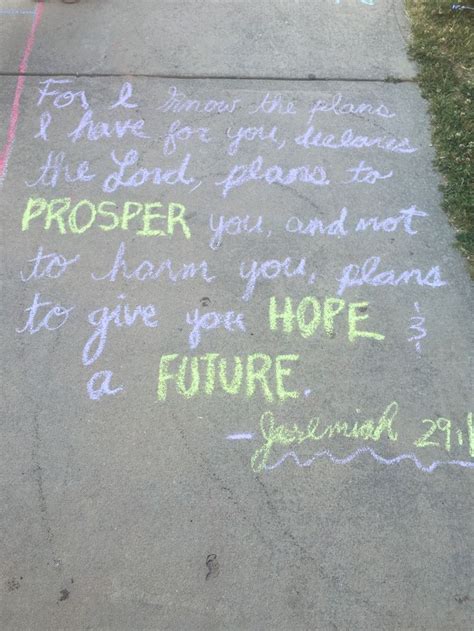 For I know the plans
I have for you, declares
the Lord, plans to
PROSPER you, and not
to harm you, plans
to give you HOPE &
a FUTURE.
- Jeremiah 29:1